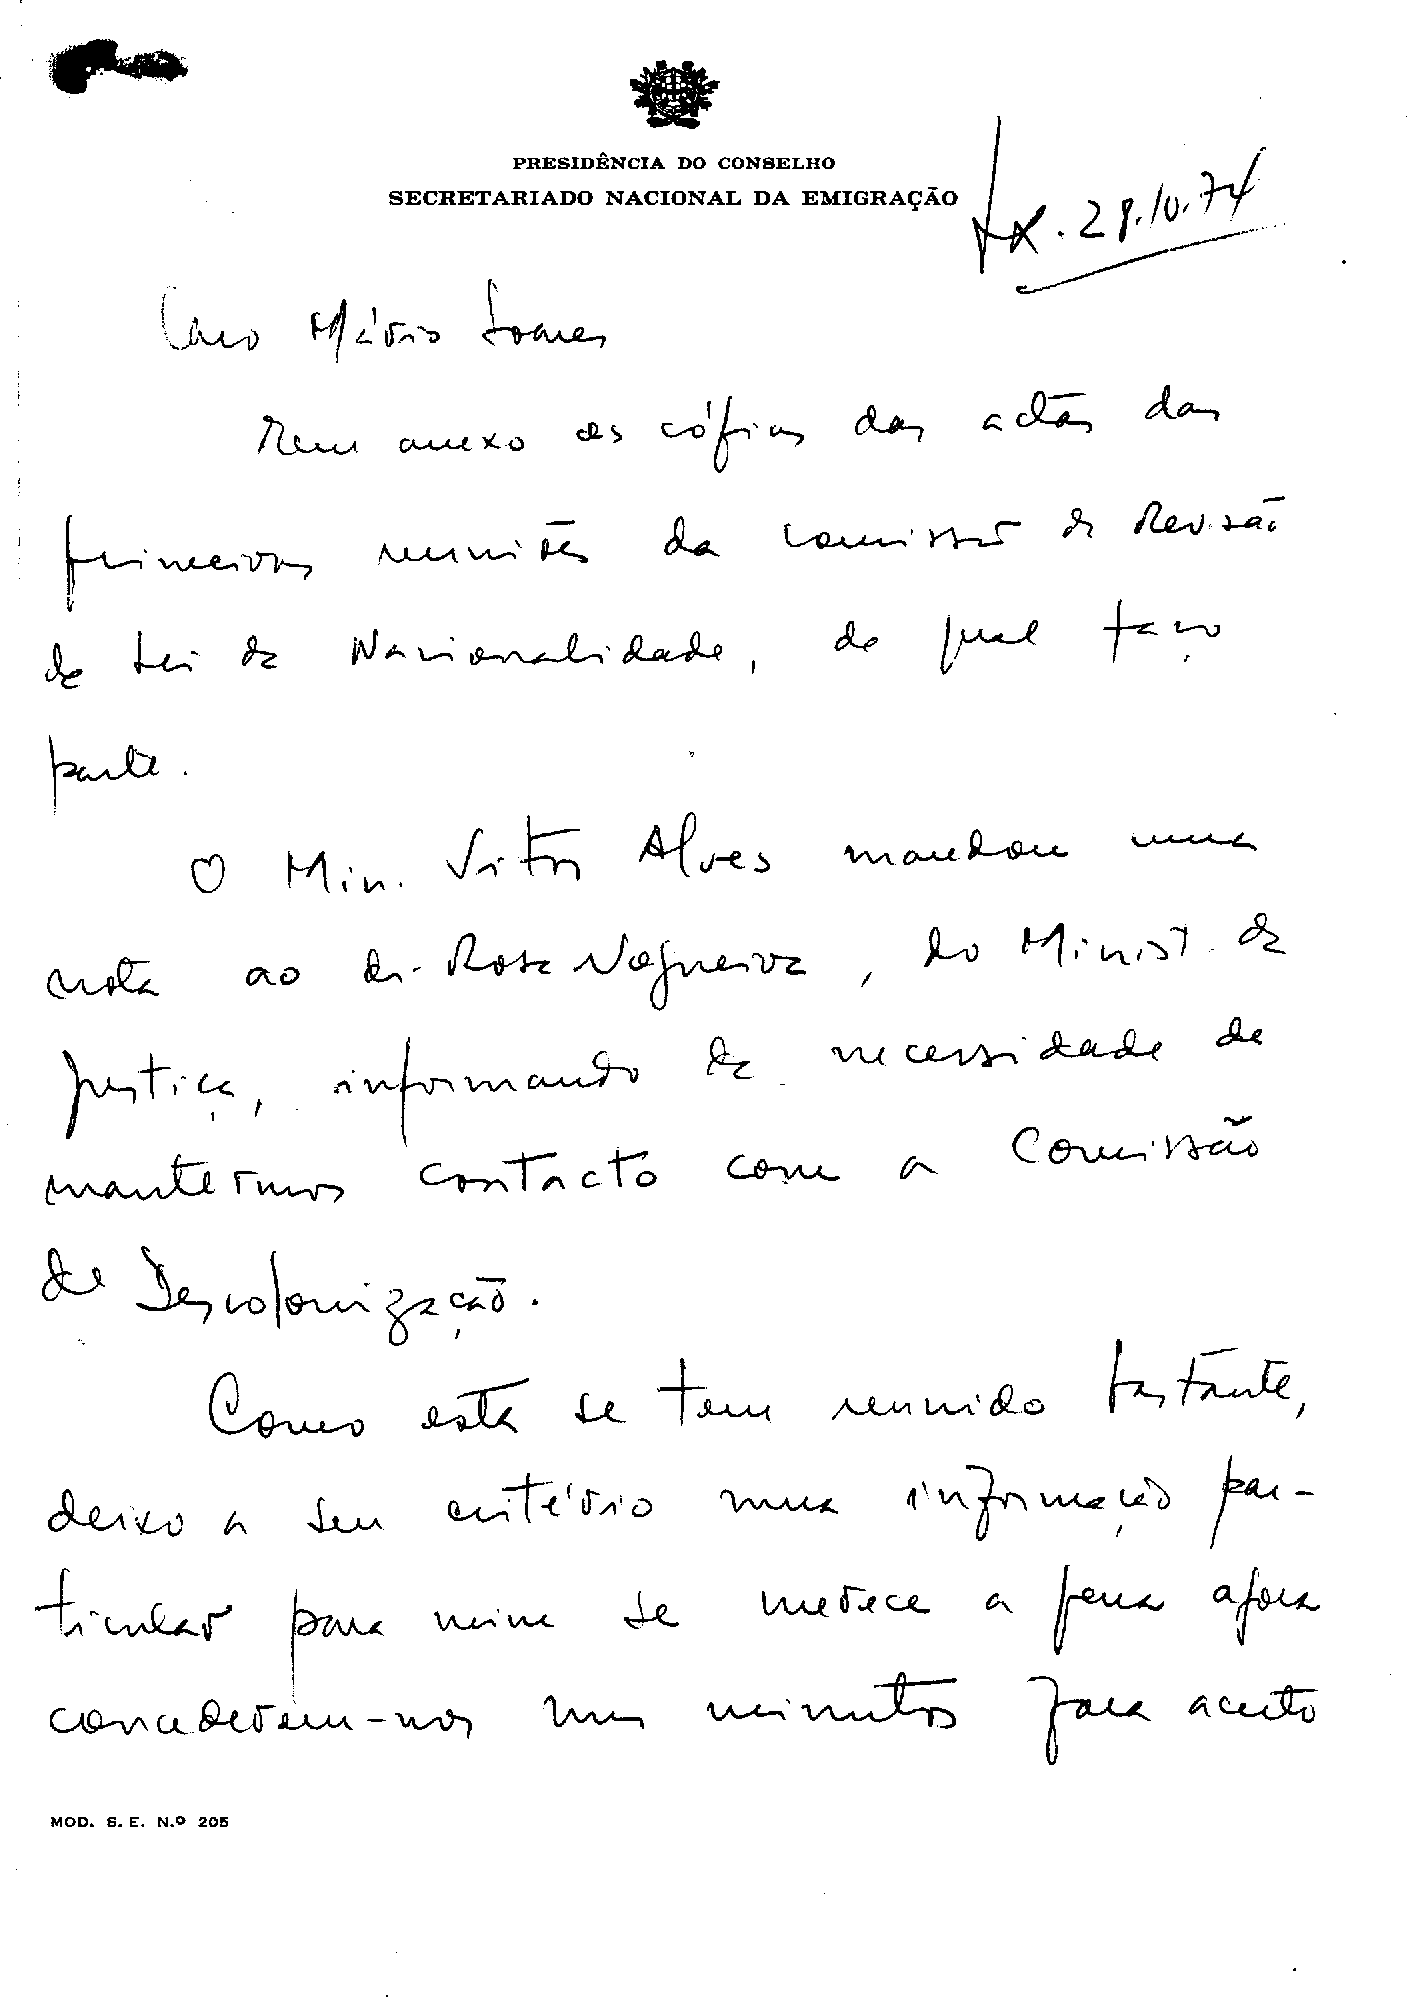 PRESIDÊNCIA DO CONSELHO
SECRETARIADO NACIONAL DA EMIGRAÇÃO
Lx. 28.10.74
Caro Mário Soares
Tem anexo as cópias das actas das
primeiras reuniões da comissão de Revisão
da Lei da Nacionalidade, da qual faço
parte.
O Min. Vitor Alves mandou uma
nota ao dr. Rosa Nogueira, do Minist. da
Justiça, informando da necessidade de
mantermos contacto com a Comissão
de Descolonização.
Como esta se tem reunido bastante,
deixo a seu critério uma informação par-
ticular para mim se merece a pena agora
concederem-nos uns minutos para acerto
MOD. S. E. N.º 205